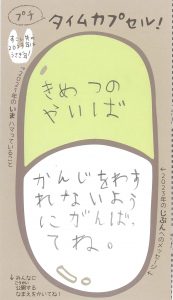 プチ
タイムカプセル！
2023年の
うさぎ年！
2023年のいまハマっていること
きめつの
やいば
←2023年のじぶんへのメッセージ
かんじをわす
れないよう
にがんば、
てね。
↓みんなに
公開する
なまえをかいてね！